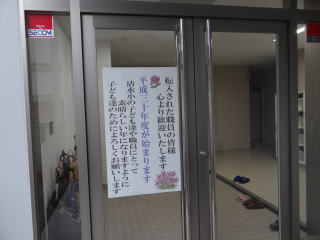 転入された職員の皆様
心より歓迎いたします
平成三十年度が始まります
清水小の子ども達や職員にとって
素晴らしい年になりますように
子ども達のためによろしくお願いします
SECOM
SECOM